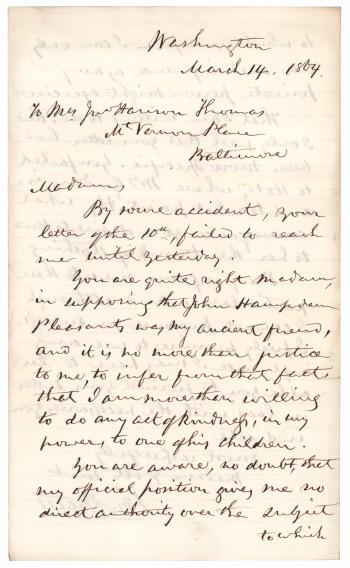 Washington
March 14. 1864.
To Mrs Jno Hanson Thomas
Mt Vernon Place
Baltimore
Madam,
By some accident, your
letter of the 10th, failed to reach
me until yesterday.
You are quite right Madam,
in supposing that John Hampden
Pleasants was my ancient friend,
and it is no more than justice
to me, to infer from that fact,
that I am more than willing
to do any act of kindness, in my
powers to one of his children.
You are aware, no doubt, that
my official position gives me no
direct authority over the subject
to which